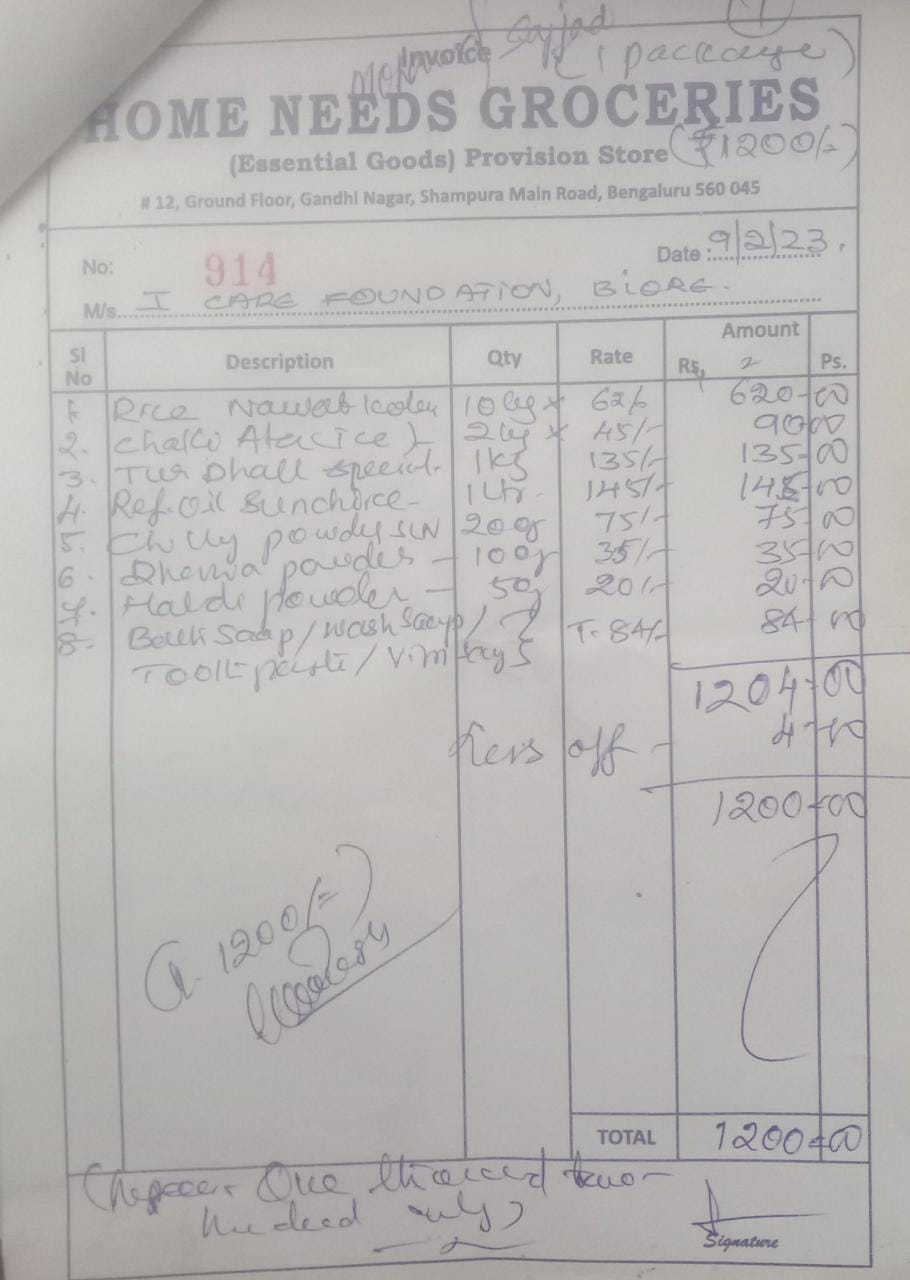 Sajjad
Invoice (1 package)
HOME NEEDS GROCERIES
(Essential Goods) Provision Store (₹1200/-)
# 12, Ground Floor, Gandhi Nagar, Shampura Main Road, Bengaluru 560 045
No: 914 Date : 9/2/23.
M/s. I CARE FOUNDATION, B'LORE.
Sl No Description Qty Rate Amount Rs. Ps.
1. Rice Nawab 10kg x 62/- 620-00
2. 2kg x 45/- 90 00
3. Tur Dhall special. 1kg 135/- 135-00
4. Ref. Oil Sunchoice - 1Ltr. 145/- 145-00
5. Chilly powder SUN 200g 75/- 75 00
6. powder - 100g 35/- 35-00
7. Haldi powder - 50g 20/- 20-00
8. Bath Soap / Wash Soap / T. 84/- 84-00
Tooth paste / Vim
1204-00
off - 4-00
1200-00
1200/-
TOTAL 1200-00
(Rupees One thousand two
hundred only)
Signature